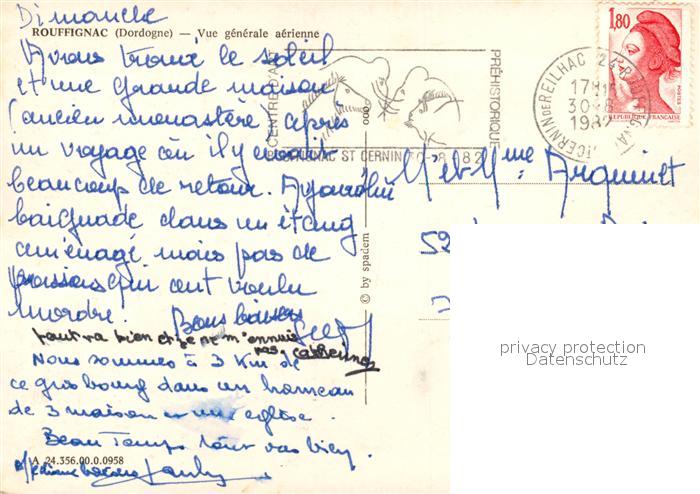 Dimanche
ROUFFIGNAC (Dordogne) — Vue générale aérienne
Avons trouvé le soleil
et une grande maison
(ancien monastère) après
un voyage où il y avait
beaucoup de retour. Aujourd'hui
baignade dans un étang
aménagé mais pas de
poissons qui ont voulu
mordre. Bons baisers
tout va bien et je ne m'ennuie
pas. Catherine
Nous sommes à 3 Km de
ce gros bourg dans un hameau
de 3 maison et une eglise.
Beau Temps tout vas bien
A 24.356.00.0.0958
CENTRE D'ART
PRÉHISTORIQUE
ROUFFIGNAC ST CERNIN
17H15
30-8
1982
1,80
POSTES
REPUBLIQUE FRANÇAISE
© by spadem
Mr et Mme Arquinet
59
privacy protection
Datenschutz